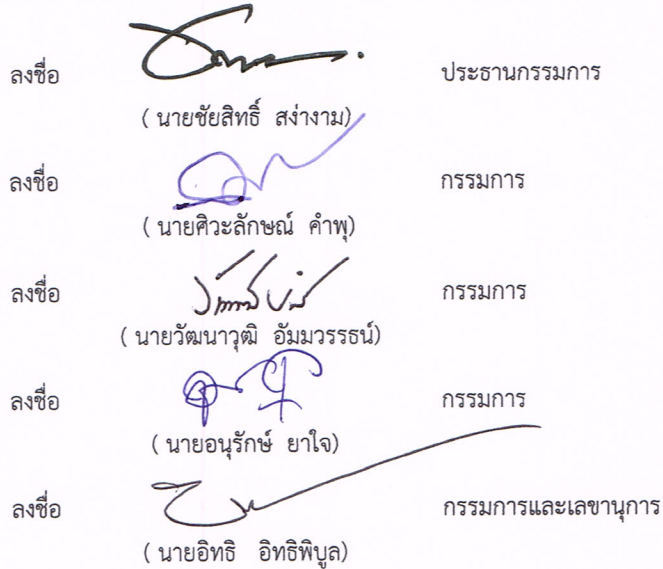 ลงชื่อ ประธานกรรมการ
( นายชัยสิทธิ์ สง่างาม)
ลงชื่อ กรรมการ
( นายศิวะลักษณ์ คำพุ)
ลงชื่อ กรรมการ
( นายวัฒนาวุฒิ อัมมวรรธน์)
ลงชื่อ กรรมการ
( นายอนุรักษ์ ยาใจ)
ลงชื่อ กรรมการและเลขานุการ
( นายอิทธิ อิทธิพิบูล)